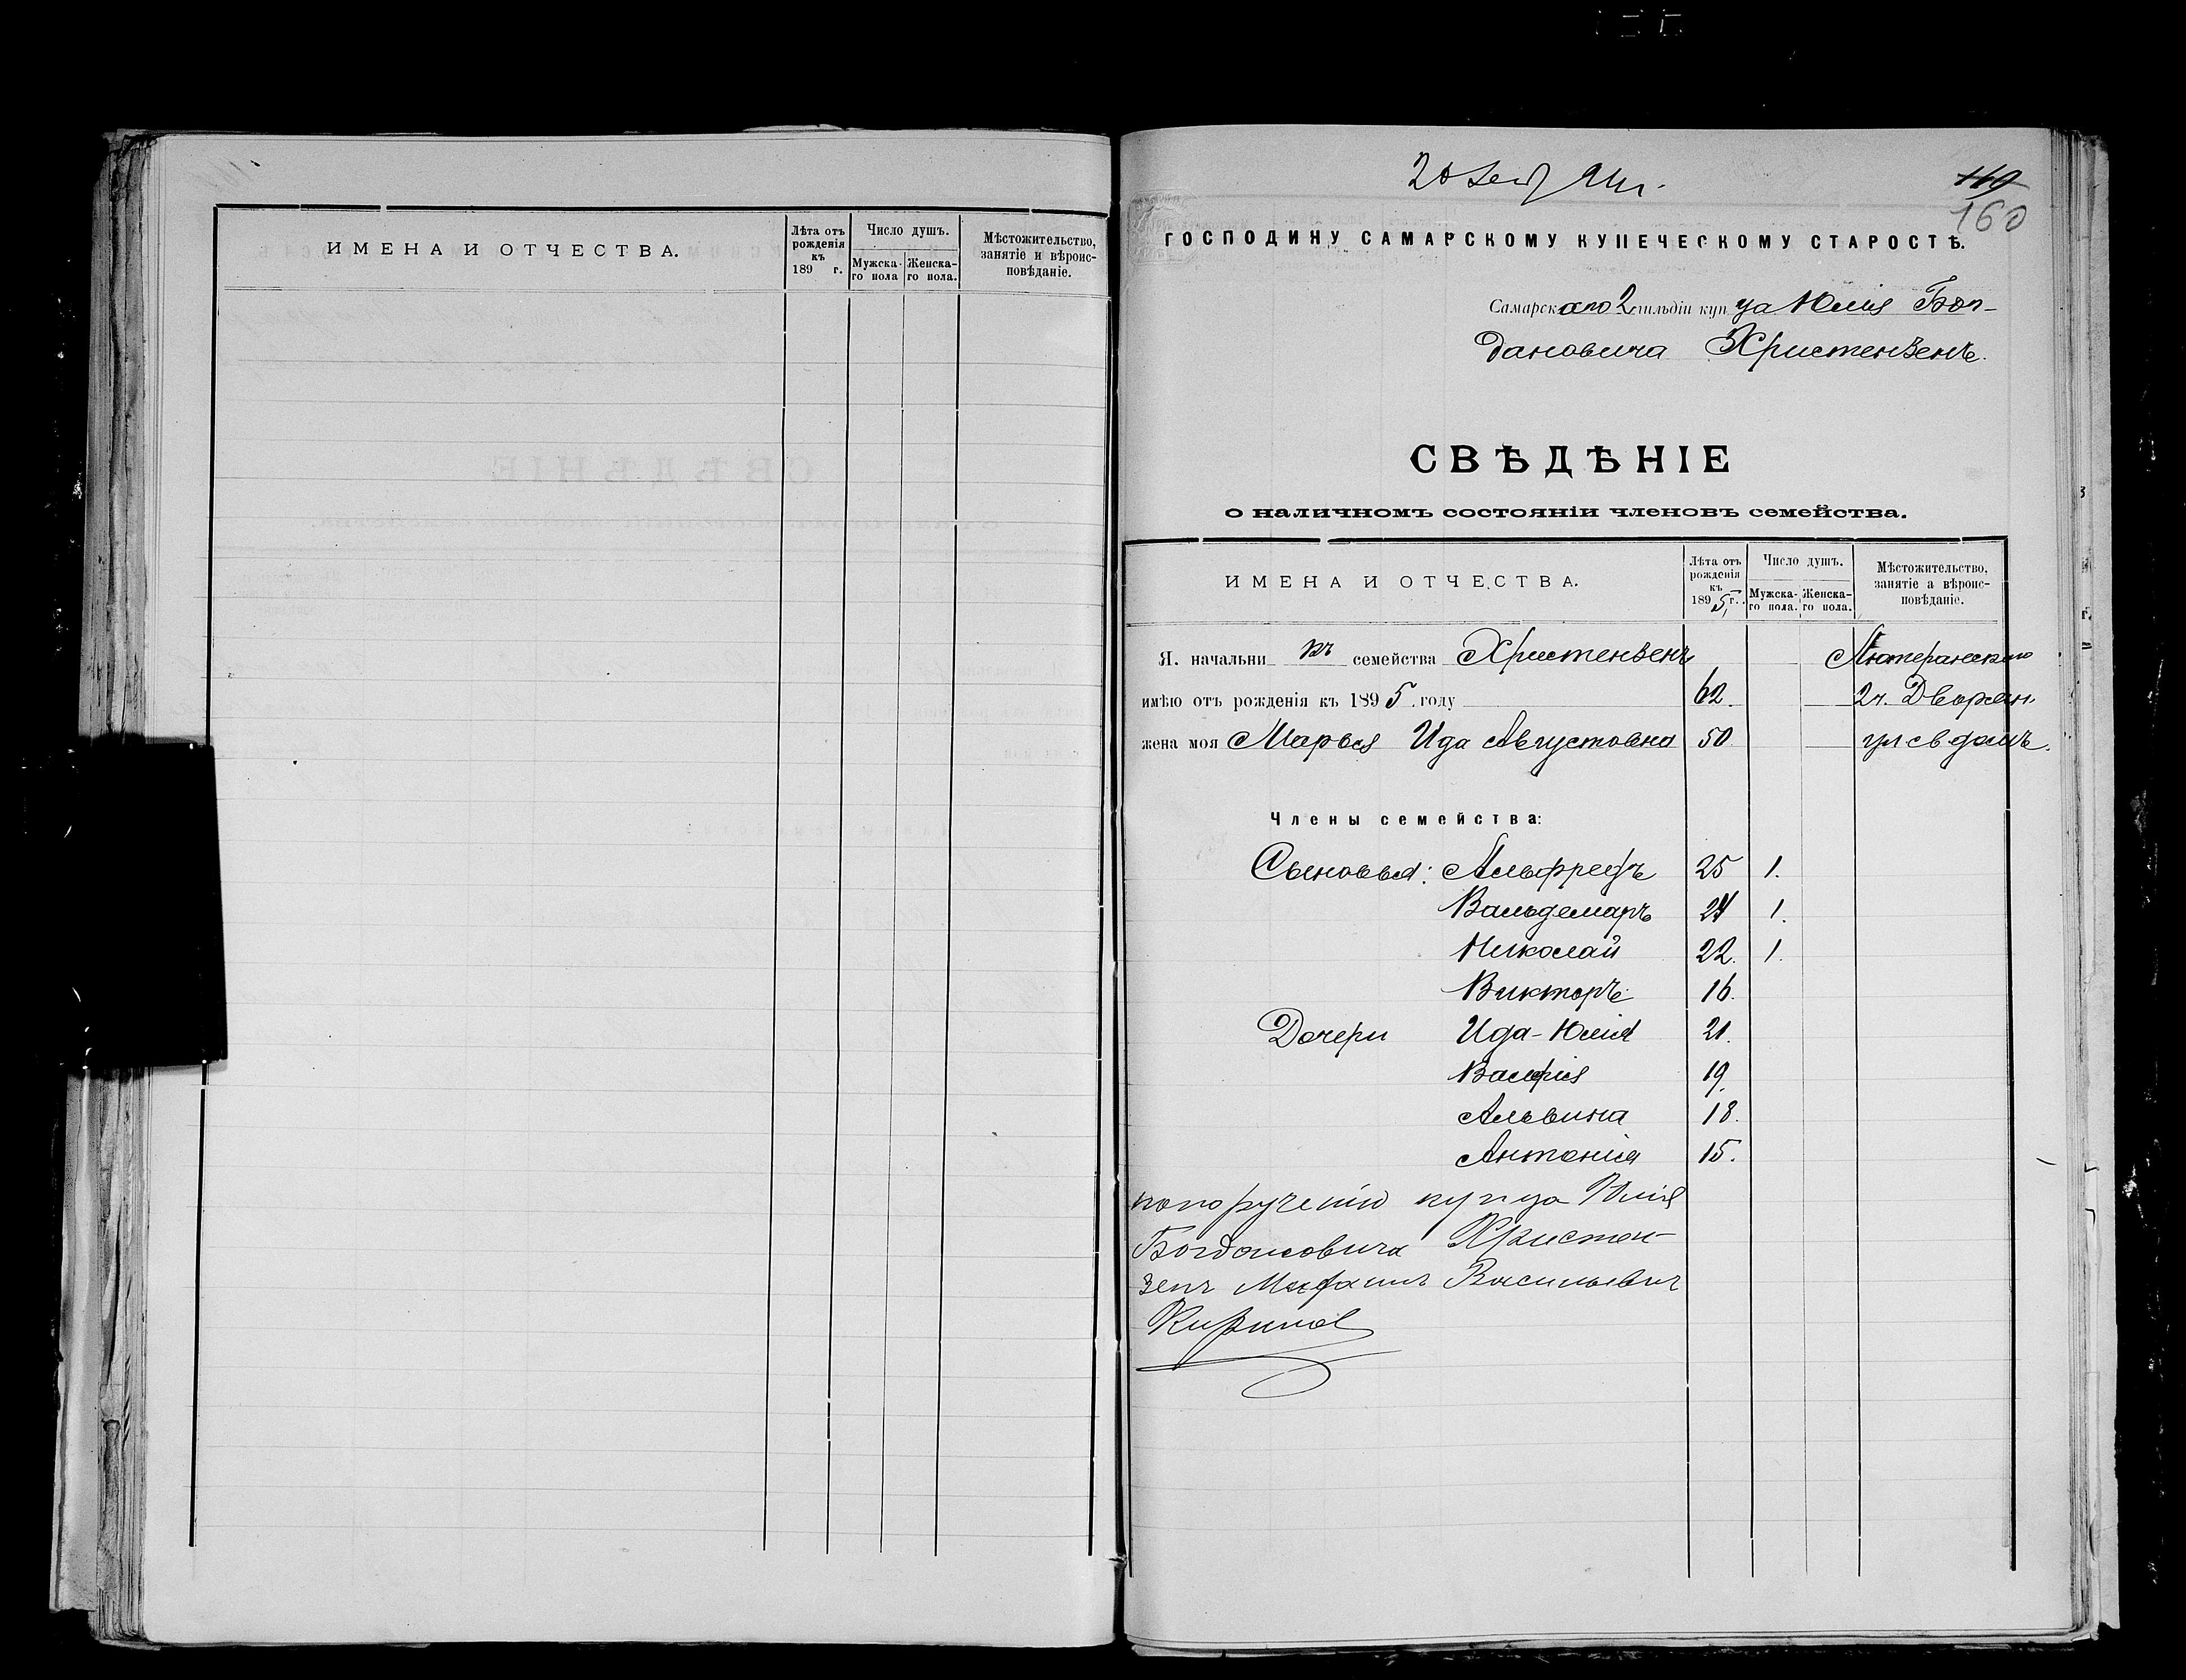 ИМЕНА И ОТЧЕСТВА.
Лѣта отъ рожденія къ 189 г.
Число душъ.
Мужска-го пола
Женска-го пола.
Мѣстожительство, занятіе и вѣроис-повѣданіе.
160
ГОСПОДИНУ САМАРСКОМУ КУПЕЧЕСКОМУ СТАРОСТѢ.
Самарскаго 2 гильдіи купца Юлія Бог-
дановича Христензенъ.
СВѢДѢНІЕ
о наличномъ состояніи членовъ семейства.
ИМЕНА И ОТЧЕСТВА.
Лѣта отъ рожденія къ 1895 г.
Число душъ.
Мужска-го пола.
Женска-го пола.
Мѣстожительство, занятіе а вѣроис-повѣданіе.
Я. начальникъ семейства Христензенъ Лютеранскаго
имѣю отъ рожденія къ 1895 году 62. 2ч. Дворян.
жена моя Марья Ида Августовна 50 ул св домъ.
Члены семейства:
Сыновья: Альфредъ 25 1.
Вальдемаръ 24 1.
Николай 22. 1.
Викторъ 16.
Дочери Ида-Юлія 21.
19.
Альвина 18.
Антонія 15.
по порученію купца Юлія
Богдановича Христен-
зенъ Васильевич